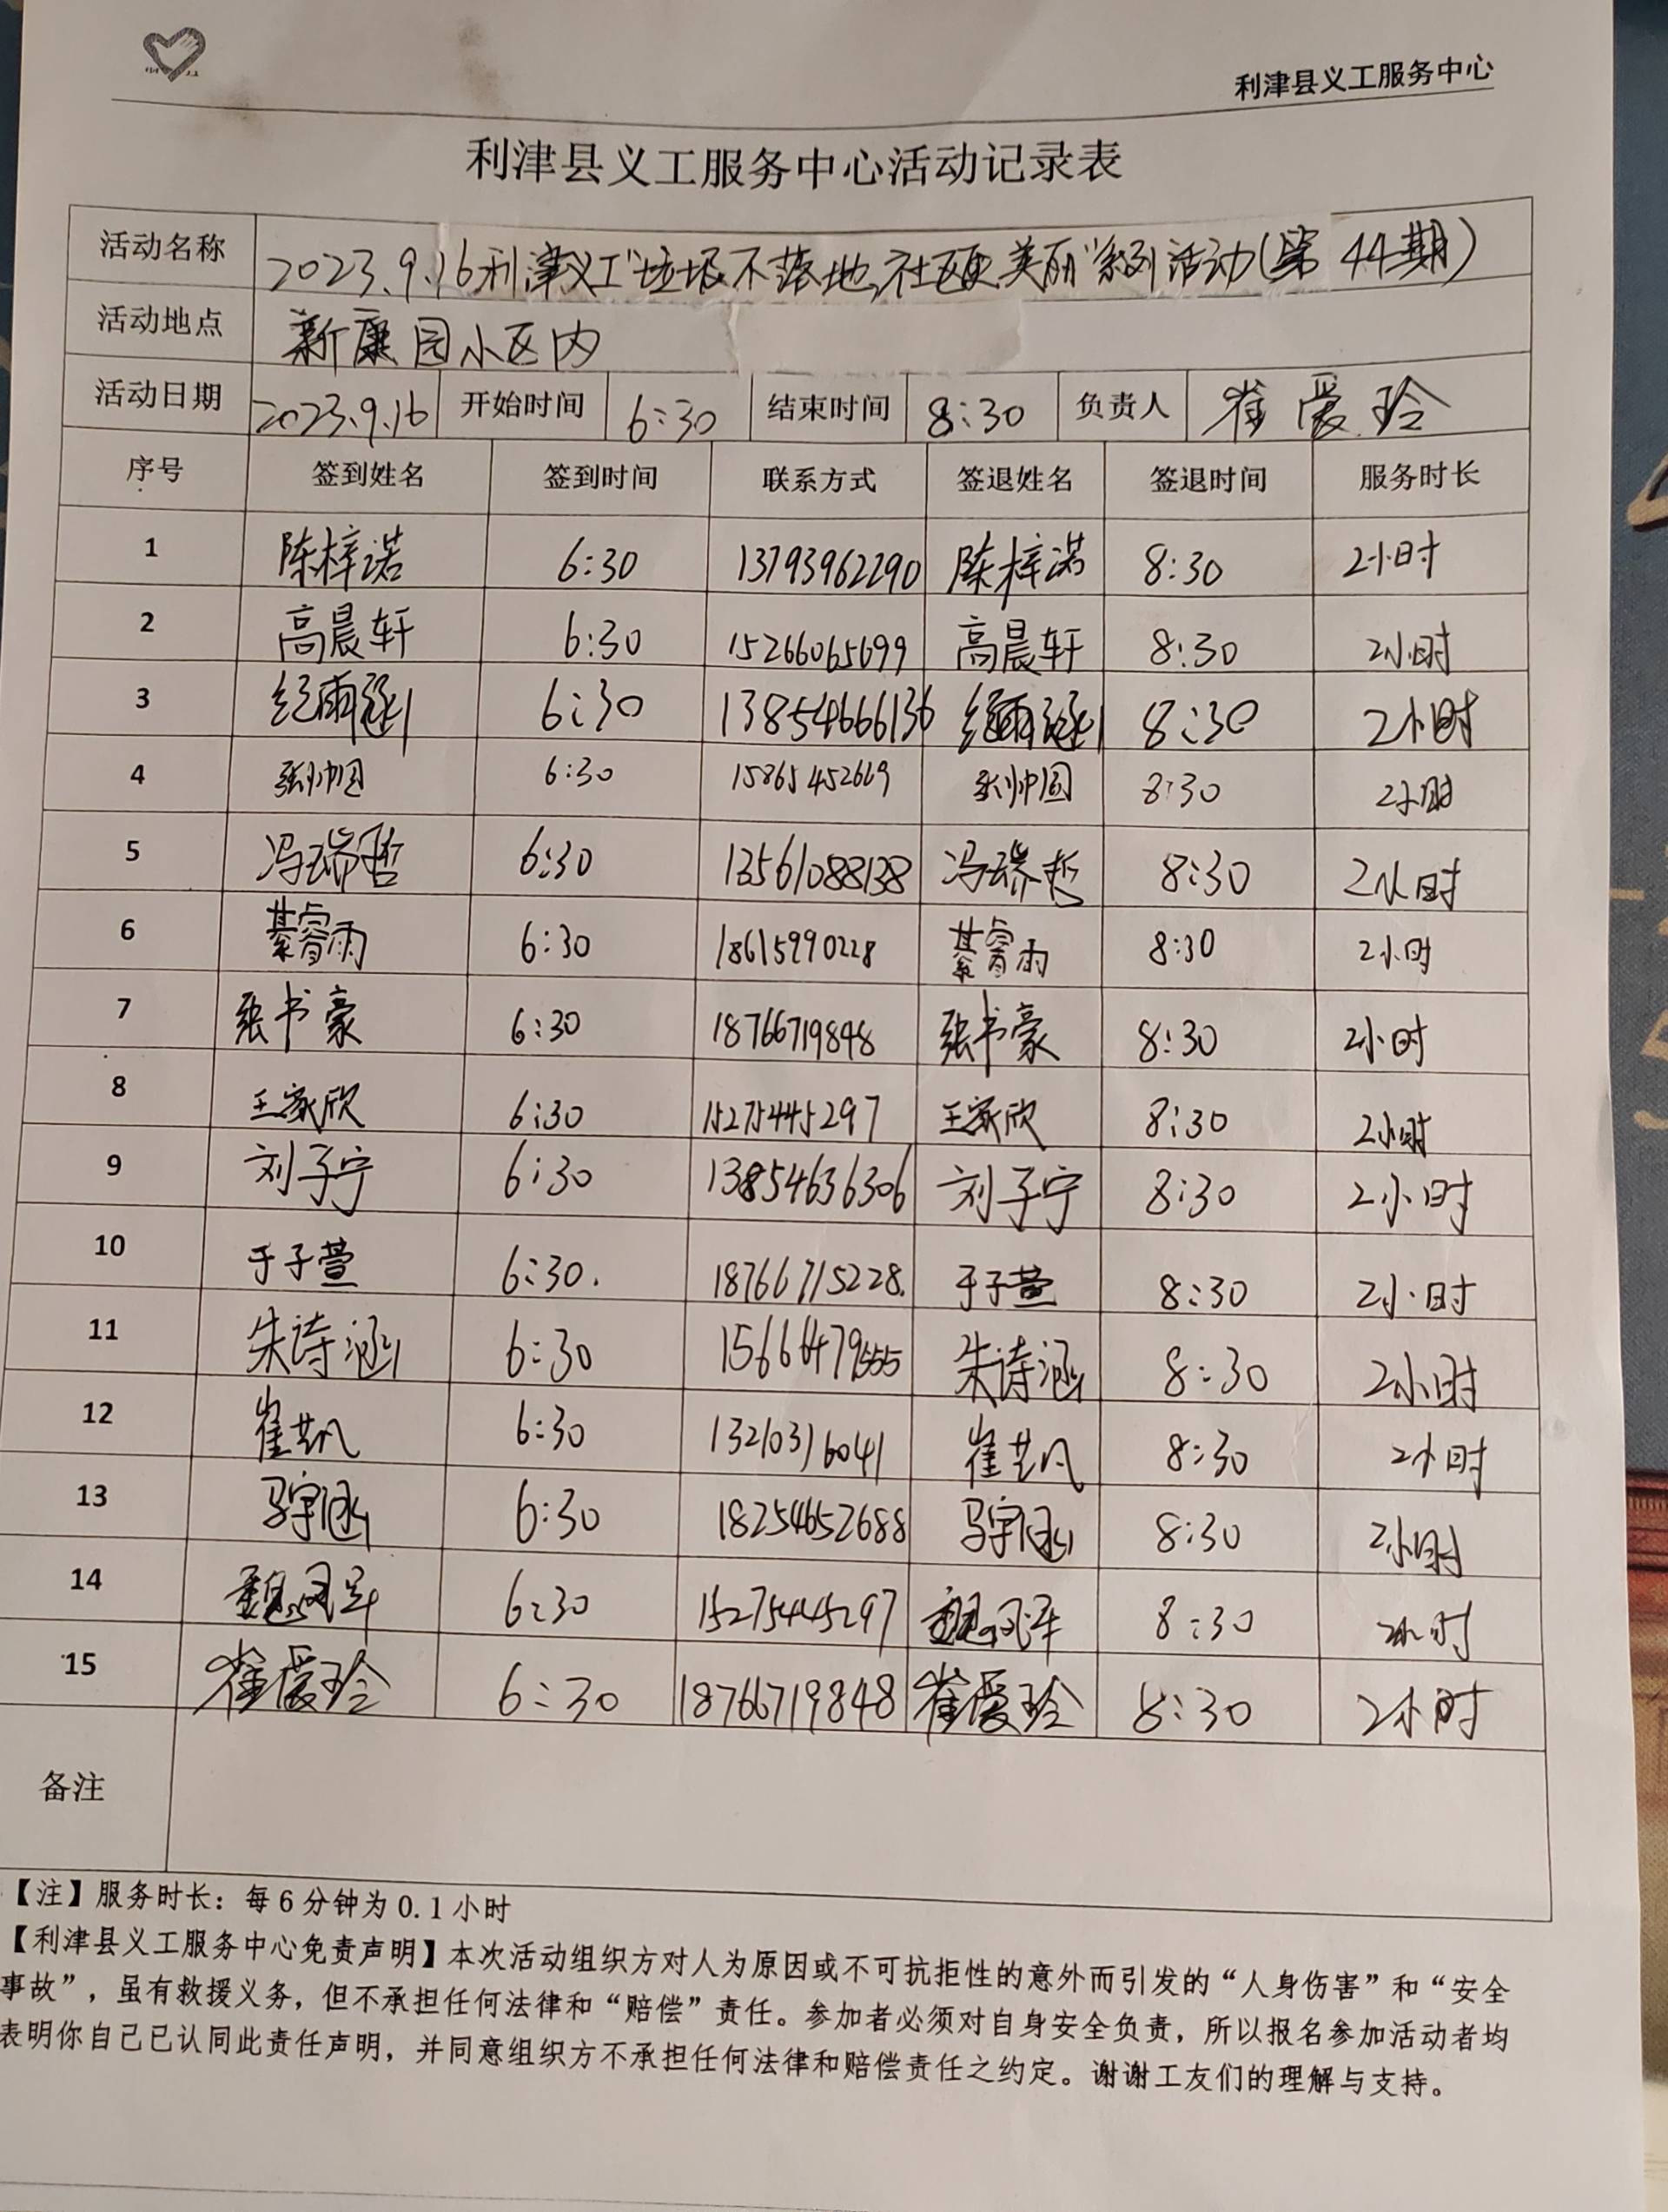 利津县义工服务中心
利津县义工服务中心活动记录表
活动名称 2023.9.16利津义工"垃圾不落地,社区更美丽"系列活动(第44期)
活动地点 新康园小区内
活动日期 2023.9.16 开始时间 6:30 结束时间 8:30 负责人 崔爱玲
序号 签到姓名 签到时间 联系方式 签退姓名 签退时间 服务时长
1 陈梓诺 6:30 13793962290 陈梓诺 8:30 2小时
2 高晨轩 6:30 15266065699 高晨轩 8:30 2小时
3 纪雨涵 6:30 13854666136 纪雨涵 8:30 2小时
4 张帅圆 6:30 15865452669 张帅圆 8:30 2小时
5 冯瑞哲 6:30 13561088138 冯瑞哲 8:30 2小时
6 綦睿雨 6:30 18615990228 綦睿雨 8:30 2小时
7 张书豪 6:30 18766719848 张书豪 8:30 2小时
8 王家欣 6:30 15275445297 王家欣 8:30 2小时
9 刘子宁 6:30 13854636306 刘子宁 8:30 2小时
10 于子萱 6:30. 18766715228. 于子萱 8:30 2小时
11 朱诗涵 6:30 15666479555 朱诗涵 8:30 2小时
12 崔艺凡 6:30 13210316041 崔艺凡 8:30 2小时
13 马宇涵 6:30 18254652688 马宇涵 8:30 2小时
14 6:30 15275445297 8:30 2小时
15 崔爱玲 6:30 18766719848 崔爱玲 8:30 2小时
备注
【注】服务时长：每6分钟为0.1小时
【利津县义工服务中心免责声明】本次活动组织方对人为原因或不可抗拒性的意外而引发的“人身伤害”和“安全
事故”，虽有救援义务，但不承担任何法律和“赔偿”责任。参加者必须对自身安全负责，所以报名参加活动者均
表明你自己已认同此责任声明，并同意组织方不承担任何法律和赔偿责任之约定。谢谢工友们的理解与支持。